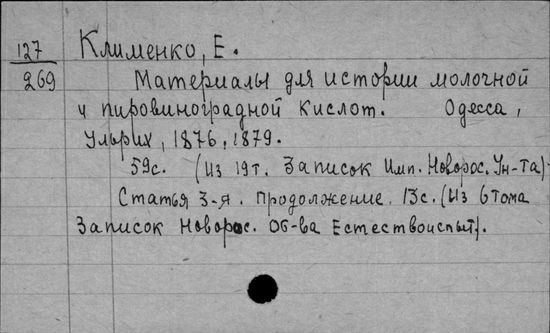 127
269
Клименко, Е.
Материалы для истории молочной
и пировиноградной кислот. Одесса,
Ульрих, 1876, 1879.
59с. (Из 19т. Записок Имп. Новорос. Ун-та)
Статья 3-я. Продолжение. 13с. (Из 6 тома
Записок Новорос. Об-ва Естествоиспыт).